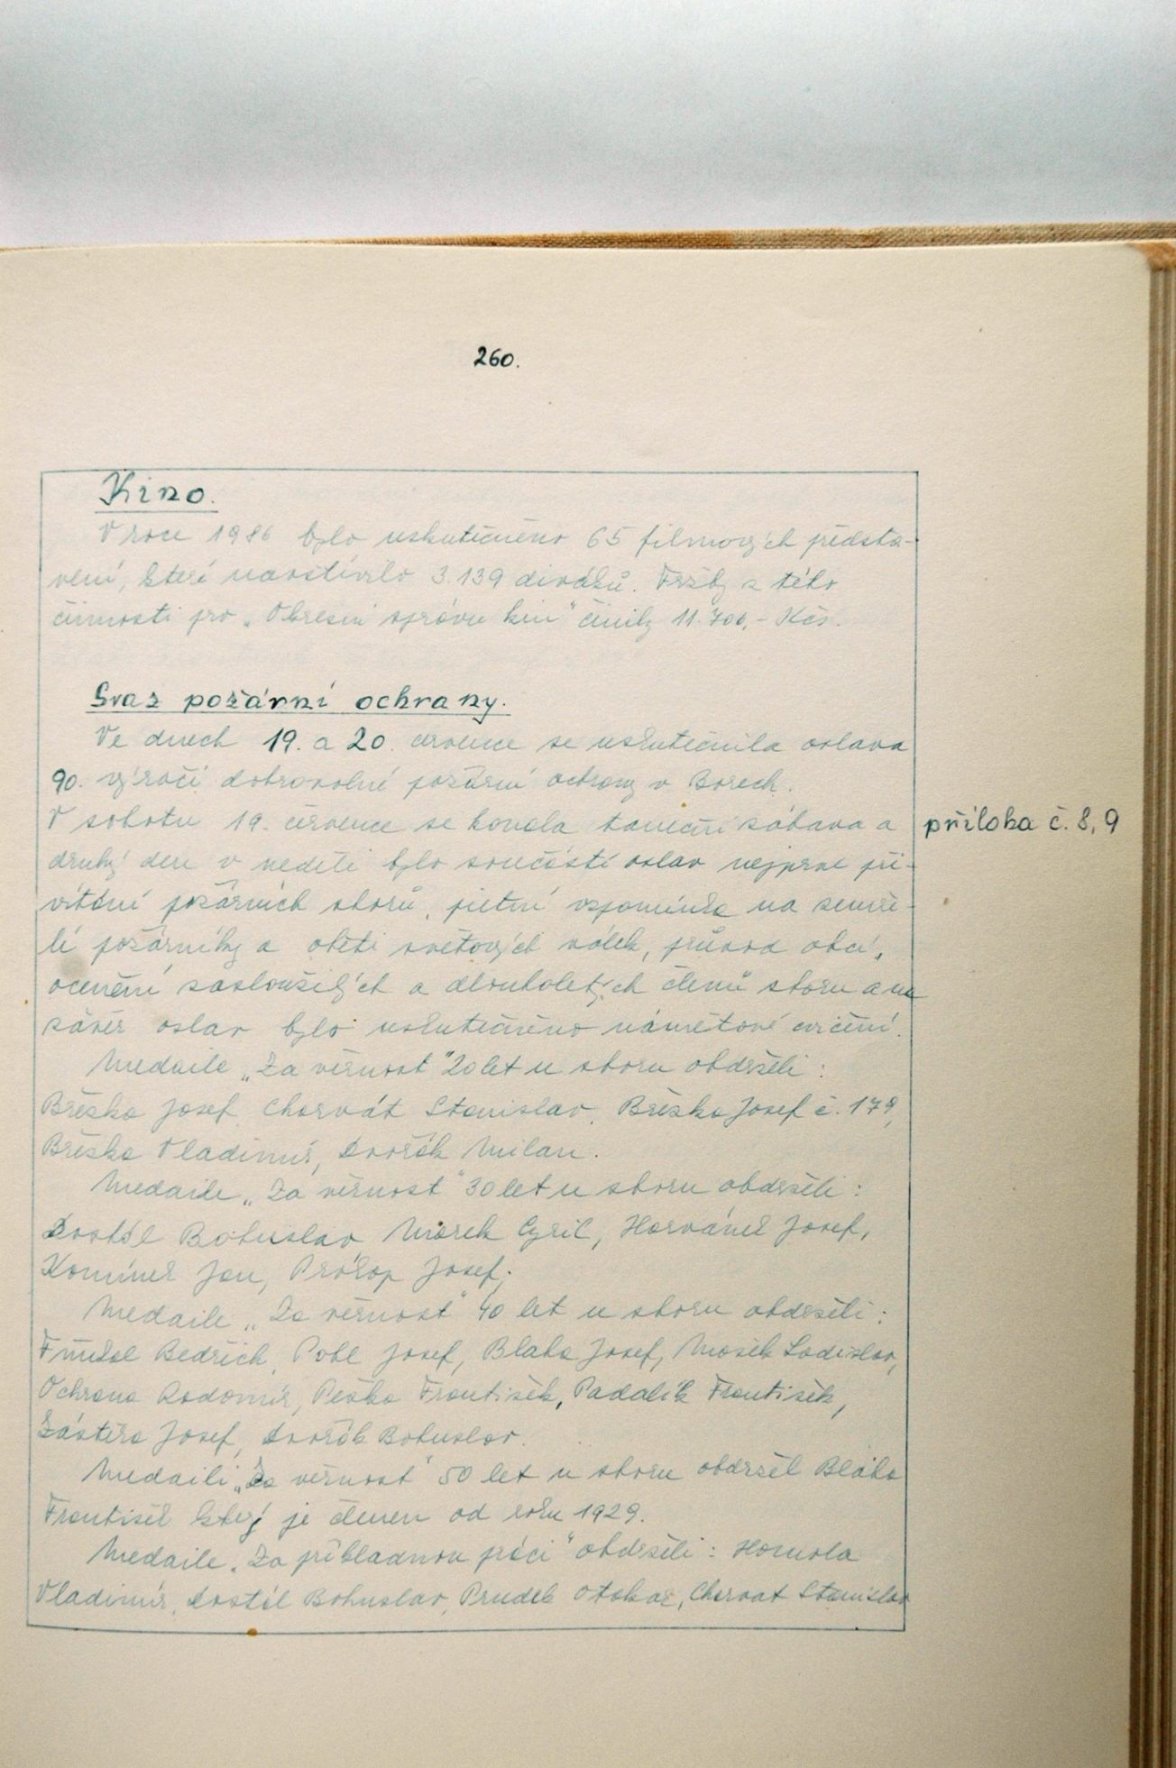 260.
Kino.
V roce 1986 bylo uskutečněno 65 filmových předsta-
vení, které navštívilo 3.139 diváků. Tržby z této
činnosti pro „Okresní správu kin" činily 11.700,- Kčs.
Svaz požární ochrany.
Ve dnech 19. a 20. července se uskutečnila oslava
90. výročí dobrovolné požární ochrany v Borech.
V sobotu 19. července se konala taneční zábava a
příloha č. 8, 9
druhý den v neděli bylo součástí oslav nejprve při-
vítání požárních sborů, pietní vzpomínka na zemře-
lé požárníky a oběti světových válek, průvod obcí,
ocenění zasloužilých a dlouholetých členů sboru a na
závěr oslav bylo uskutečněno námětové cvičení.
Medaile „Za věrnost" 20 let u sboru obdrželi:
Břízka Josef, Chorvát Stanislav, Břízka Josef č. 179,
Břízka Vladimír, Dvořák Milan.
Medaile „Za věrnost" 30 let u sboru obdrželi:
Dostál Bohuslav, Marek Cyril, Horváněk Josef,
Komínek Jan, Prókop Josef,
Medaile „Za věrnost" 40 let u sboru obdrželi:
Bedřich, Pohl Josef, Blaha Josef, Mašek Ladislav,
Ochrana Radomír, Peška František, Padalík František,
Zástěra Josef, Dvořák Bohuslav.
Medaili „Za věrnost" 50 let u sboru obdržel Bláha
František který je členem od roku 1929.
Medaile „Za příkladnou práci" obdrželi: Homola
Vladimír, Dostál Bohuslav, Prudek Otokar, Chorvat Stanislav